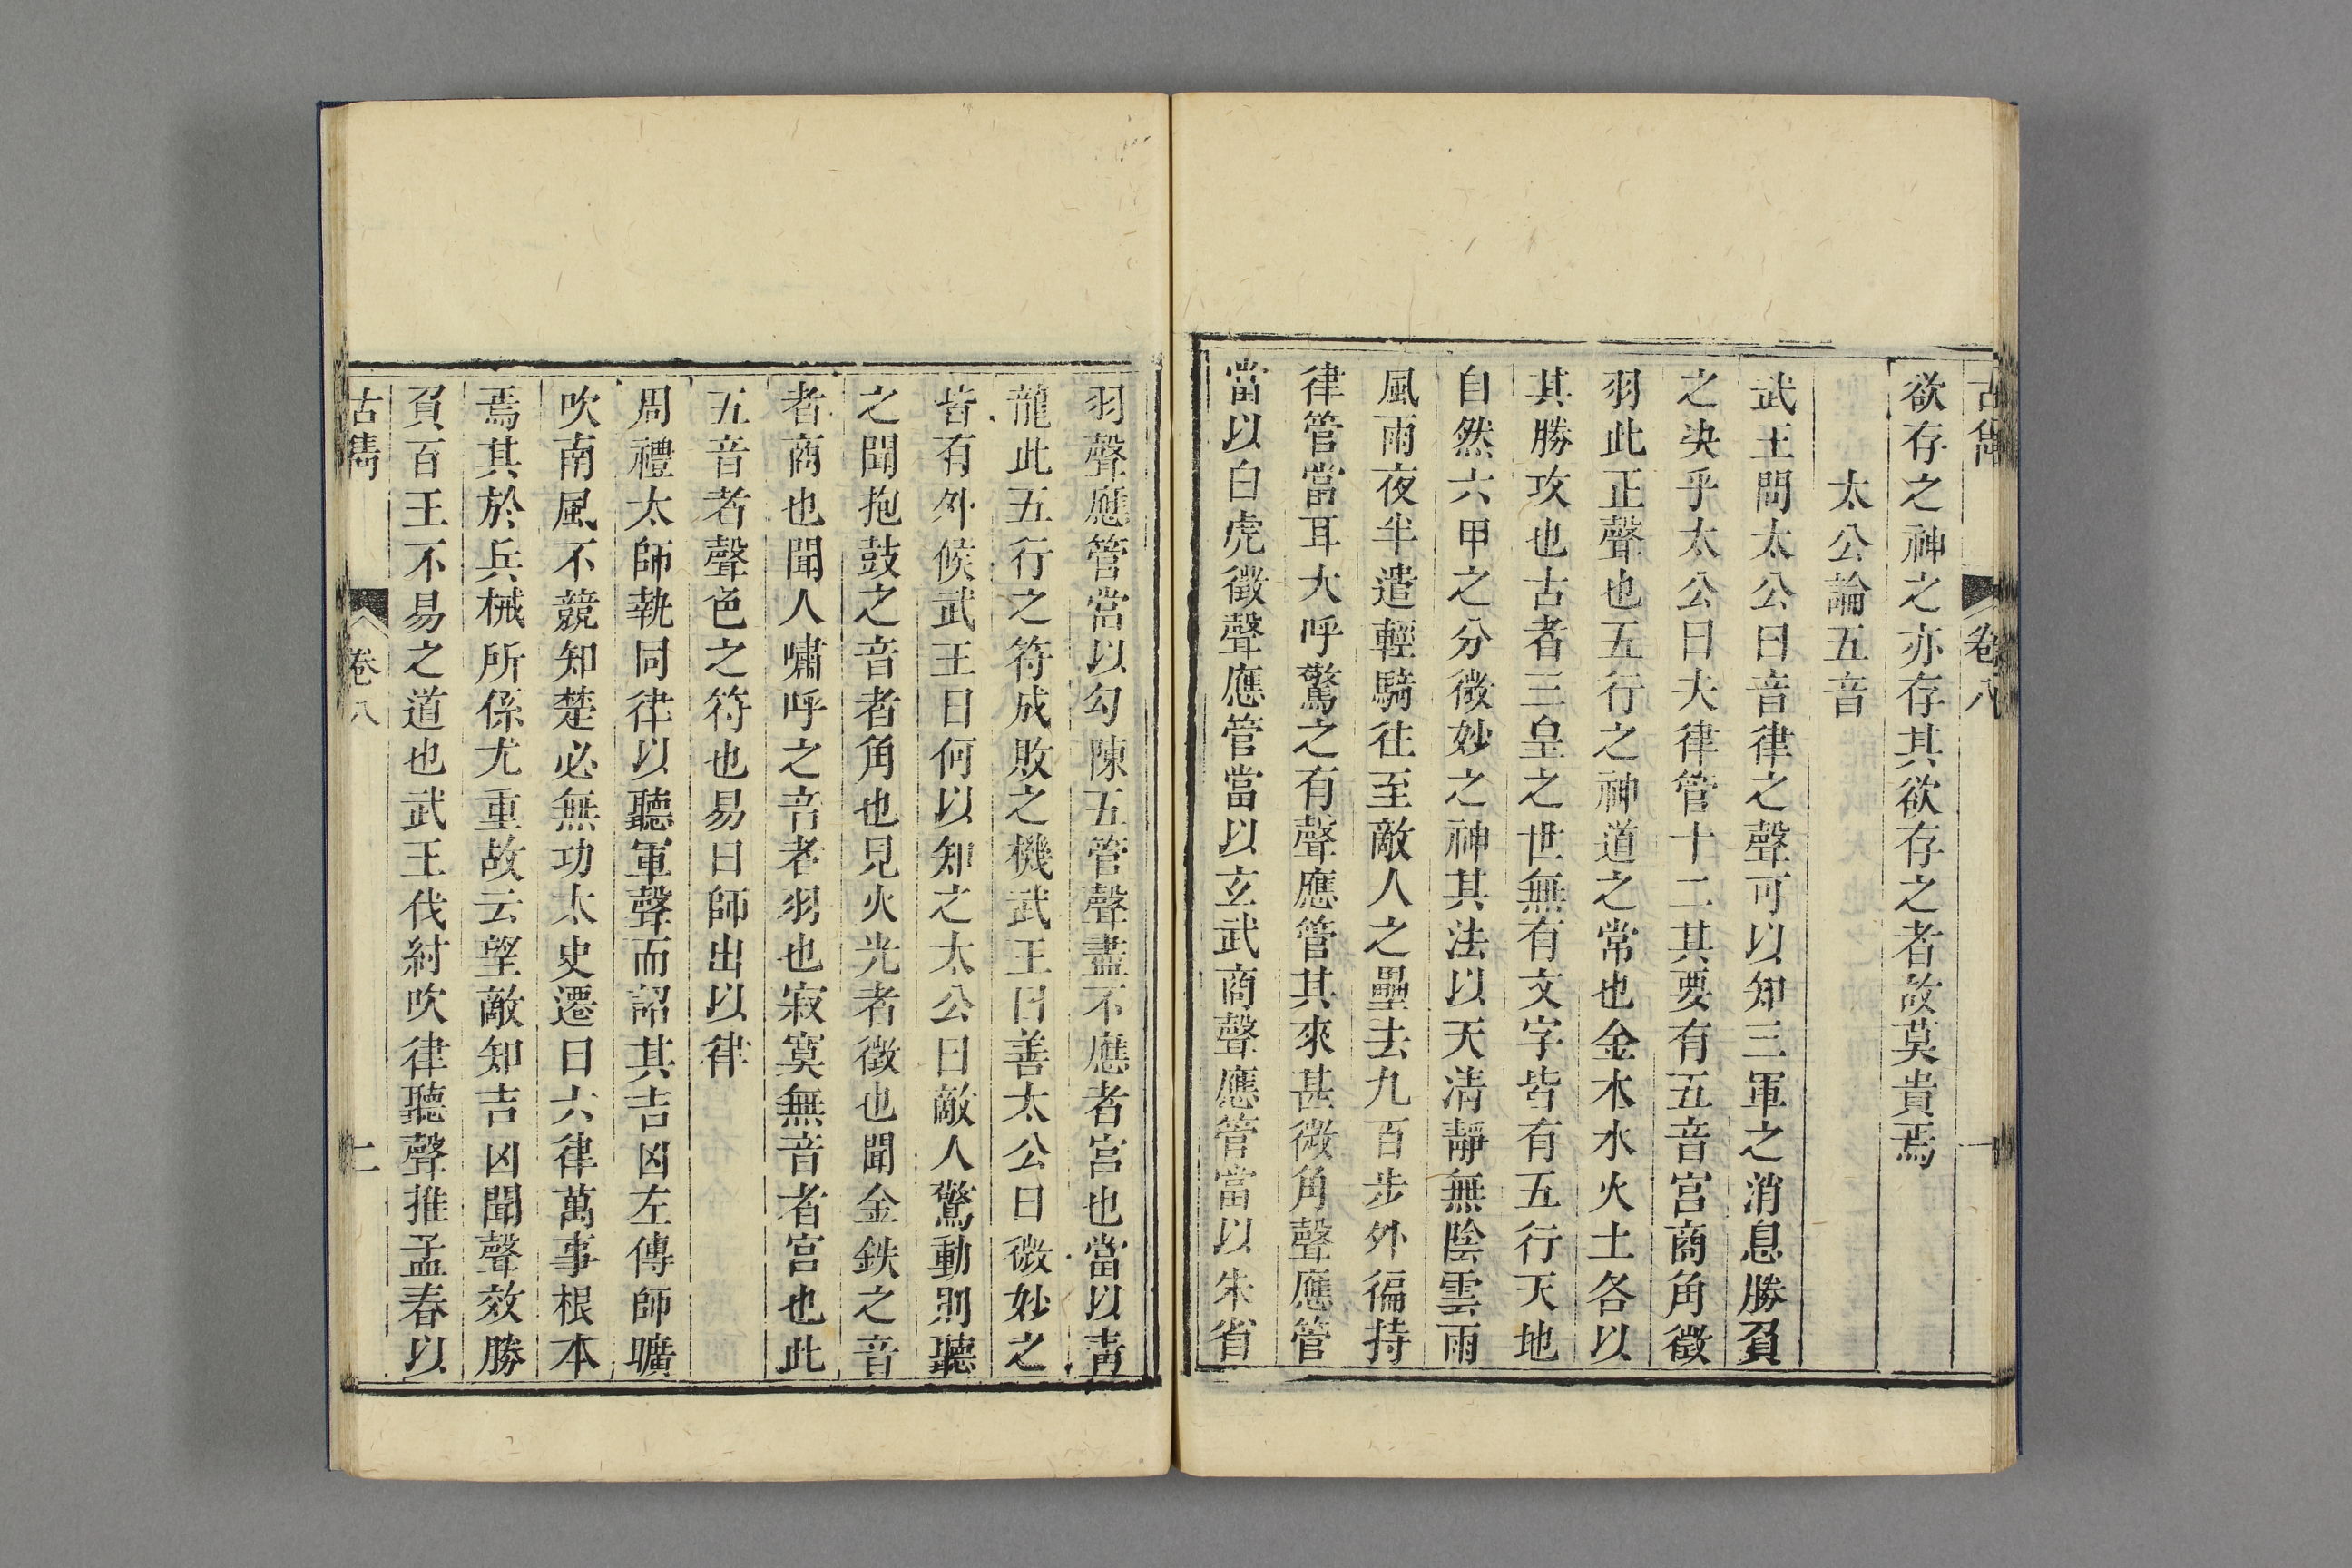 古雋 卷八 一
欲存之神之亦存其欲存之者故莫貴焉
太公論五音
武王問太公曰音律之聲可以知三軍之消息勝負
之决乎太公曰夫律管十二其要有五音宫商角徵
羽此正聲也五行之神道之常也金木水火土各以
其勝攻也古者三皇之世無有文字皆有五行天地
自然六甲之分微妙之神其法以天清靜無陰雲雨
風雨夜半遣輕騎往至敵人之壘去九百步外徧持
律管當耳大呼驚之有聲應管其來甚微角聲應管
當以白虎徵聲應管當以玄武商聲應管當以朱省
羽聲應管當以勾陳五管聲盡不應者宫也當以青
龍此五行之符成敗之機武王曰善太公曰微妙之
皆有外候武王曰何以知之太公曰敵人驚動則聽
之聞抱鼓之音者角也見火光者徵也聞金鉄之音
者商也聞人嘯呼之音者羽也寂寞無音者宫也此
五音者聲色之符也易曰師出以律
周禮太師執同律以聽軍聲而詔其吉凶左傳師曠
吹南風不競知楚必無功太史遷曰六律萬事根本
焉其於兵械所係尤重故云望敵知吉凶聞聲效勝
負百王不易之道也武王伐紂吹律聽聲推孟春以
古雋 卷八 二